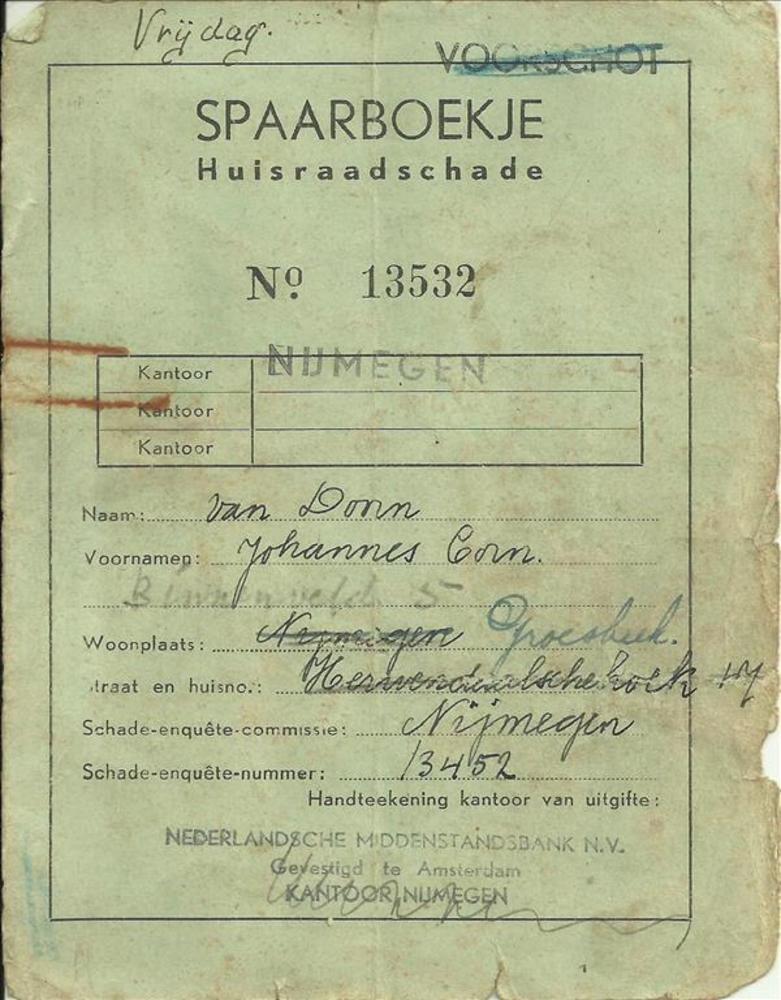 Vrijdag.
VOORSCHOT
SPAARBOEKJE
Huisraadschade
Nº 13532
NIJMEGEN
Kantoor
Kantoor
Kantoor
Naam: van Dorn
Voornamen: Johannes Corn.
5
Woonplaats: Nijmegen Groesbeek.
traat en huisno.:
Schade-enquête-commissie: Nijmegen
Schade-enquête-nummer: 13452
Handteekening kantoor van uitgifte:
NEDERLANDSCHE MIDDENSTANDSBANK N.V.
Gevestigd te Amsterdam
KANTOOR NIJMEGEN